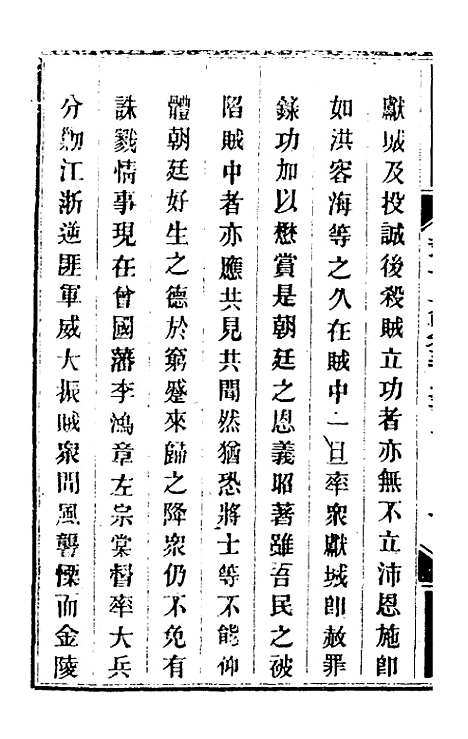 獻城及投誠後殺賊立功者亦無不立沛恩施即
如洪容海等之久在賊中一旦率衆獻城即赦罪
錄功加以懋賞是朝廷之恩義昭著雖吾民之被
陷賊中者亦應共見共聞然猶恐將士等不能仰
體朝廷好生之德於窮蹙來歸之降衆仍不免有
誅戮情事現在曾國藩李鴻章左宗棠督率大兵
分勦江浙逆匪軍威大振賊衆聞風讋慄而金陵